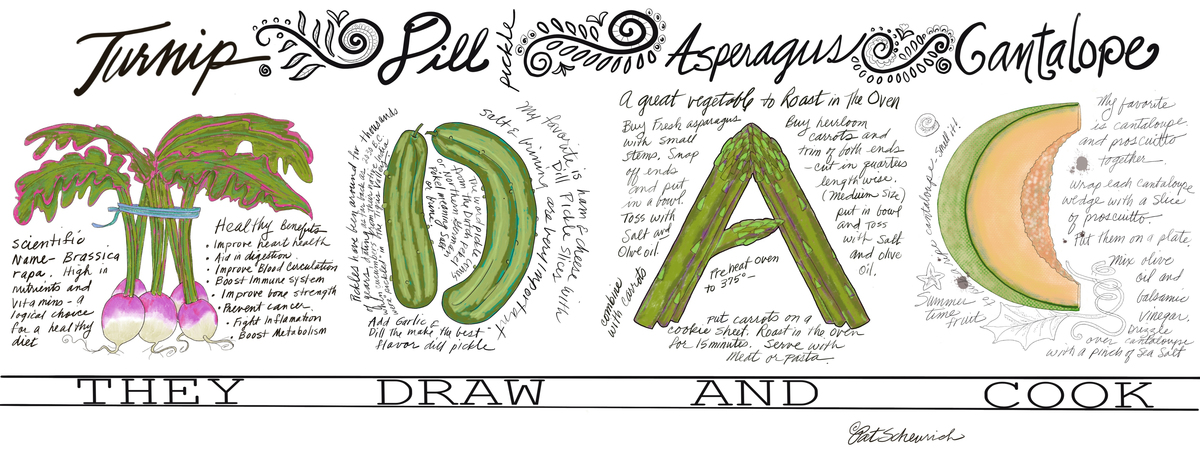 Turnip
Dill
pickle
Asperagus
Cantalope
Scientific
Name- Brassica
rapa. High in
nutrients and
vitamins - a
logical choice
for a healthy
diet
Healthy Benefits
• Improve heart health
• Aid in digestion
• Improve Blood Circulation
• Boost Immune system
• Improve bone strength
• Prevent cancer
• Fight Inflamation
• Boost Metabolism
Pickles have been around for thousands
of years, dating as far back as 2030 B.C.
My favorite is ham & cheese
with Dill Pickle slices
Salt & brining are very important
Add Garlic &
Dill to make the best
flavor dill pickle
A great vegetable to Roast in The Oven
Buy Fresh asparagus
with small
stems. Snap
off ends
and put
in a bowl.
Toss with
Salt and
Olive oil.
combine
with carrots
Buy heirloom
carrots and
trim of both ends
- cut in quarters
length wise.
(medium size)
put in bowl
and toss
with Salt
and olive
oil.
Preheat oven
to 375°
put carrots on a
cookie sheet. Roast in the oven
for 15 minutes. Serve with
meat or pasta.
smell it!
Summer
time
fruit
My favorite
is cantaloupe
and prosciutto
together.
Wrap each cantaloupe
wedge with a slice
of prosciutto.
Put them on a plate
Mix olive
oil and
balsamic
vinegar.
Drizzle
over cantaloupe
with a pinch of Sea Salt
THEY DRAW AND COOK
Pat Scheurich